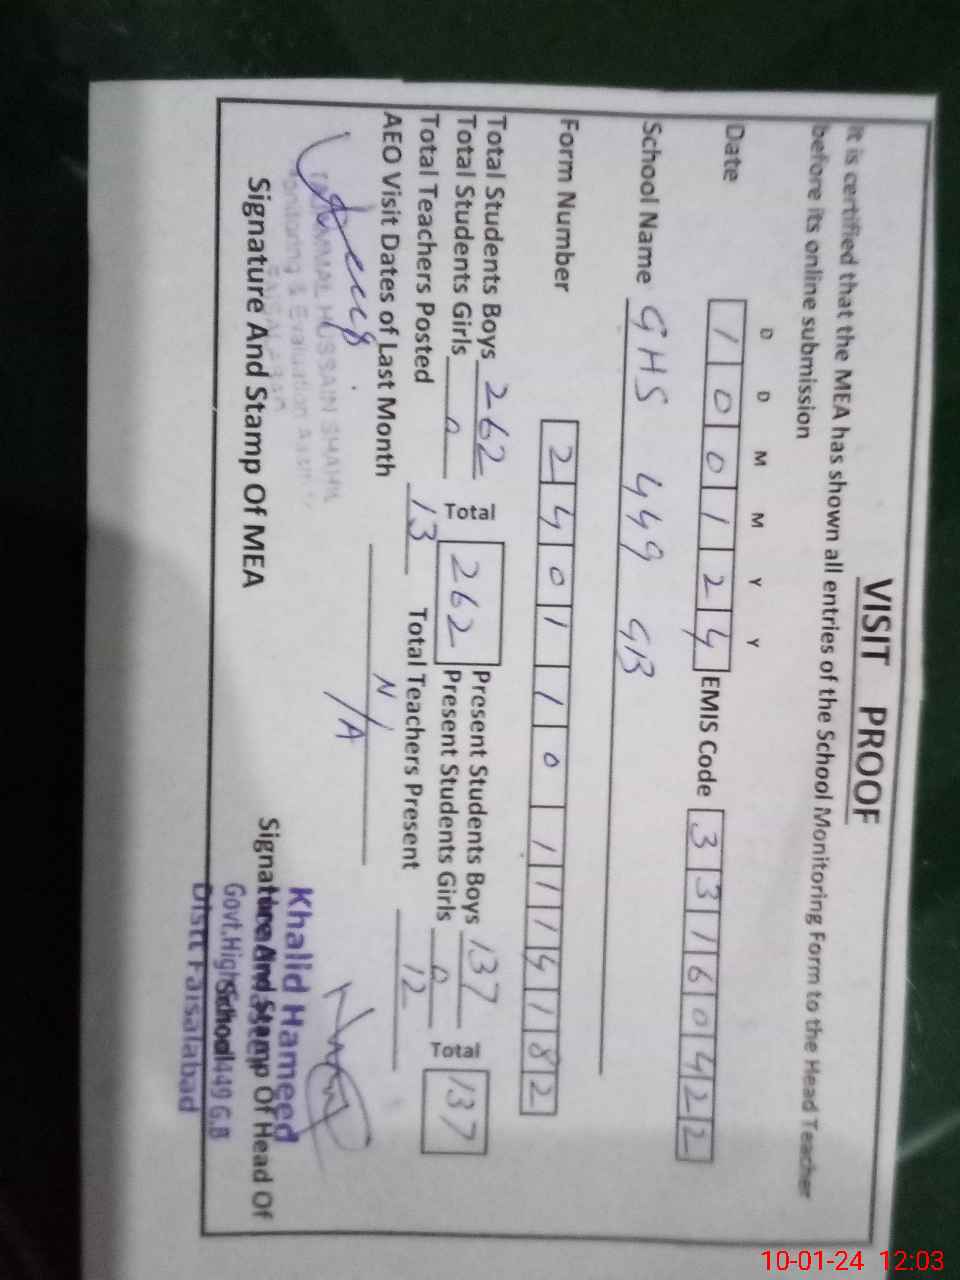 VISIT PROOF
It is certified that the MEA has shown all entries of the School Monitoring Form to the Head Teacher
before its online submission
D D M M Y Y
Date 1 0 0 1 2 4 EMIS Code 3 3 1 6 0 4 2 2
School Name GHS 449 GB
Form Number 2 4 0 1 1 0 1 1 1 4 1 8 2
Total Students Boys 262 Total 262 Present Students Boys 137 Total 137
Total Students Girls 0 Present Students Girls 0
Total Teachers Posted 13 Total Teachers Present 12
AEO Visit Dates of Last Month N/A
HUSSAIN SHAHI
Monitoring & Evaluation
FAISALABAD
Signature And Stamp Of MEA
Khalid Hameed
Signature And Stamp Of Head Of
School
Govt.High School 449 G.B
Distt Faisalabad
10-01-24 12:03